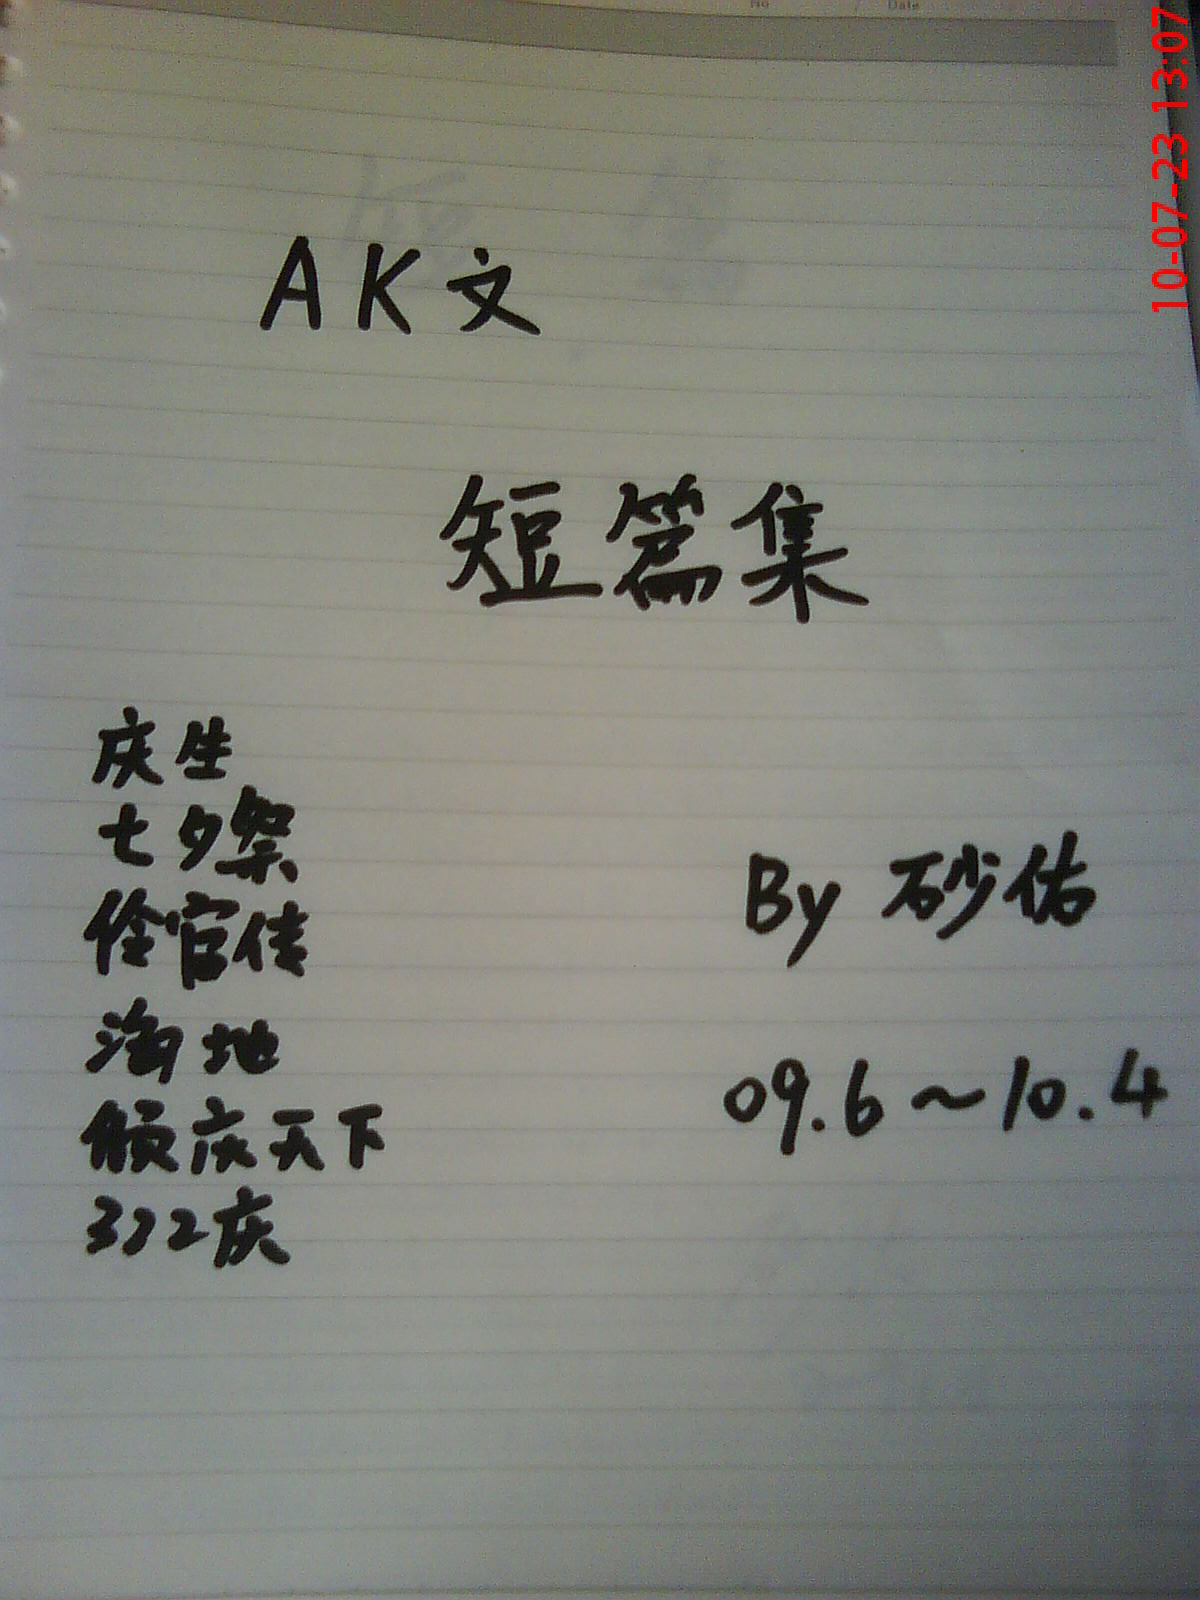 No / Date
10-07-23 13:07
AK文
短篇集
庆生
七夕祭
伶官传
淘地
颀庆天下
312庆
By 砂佑
09.6~10.4